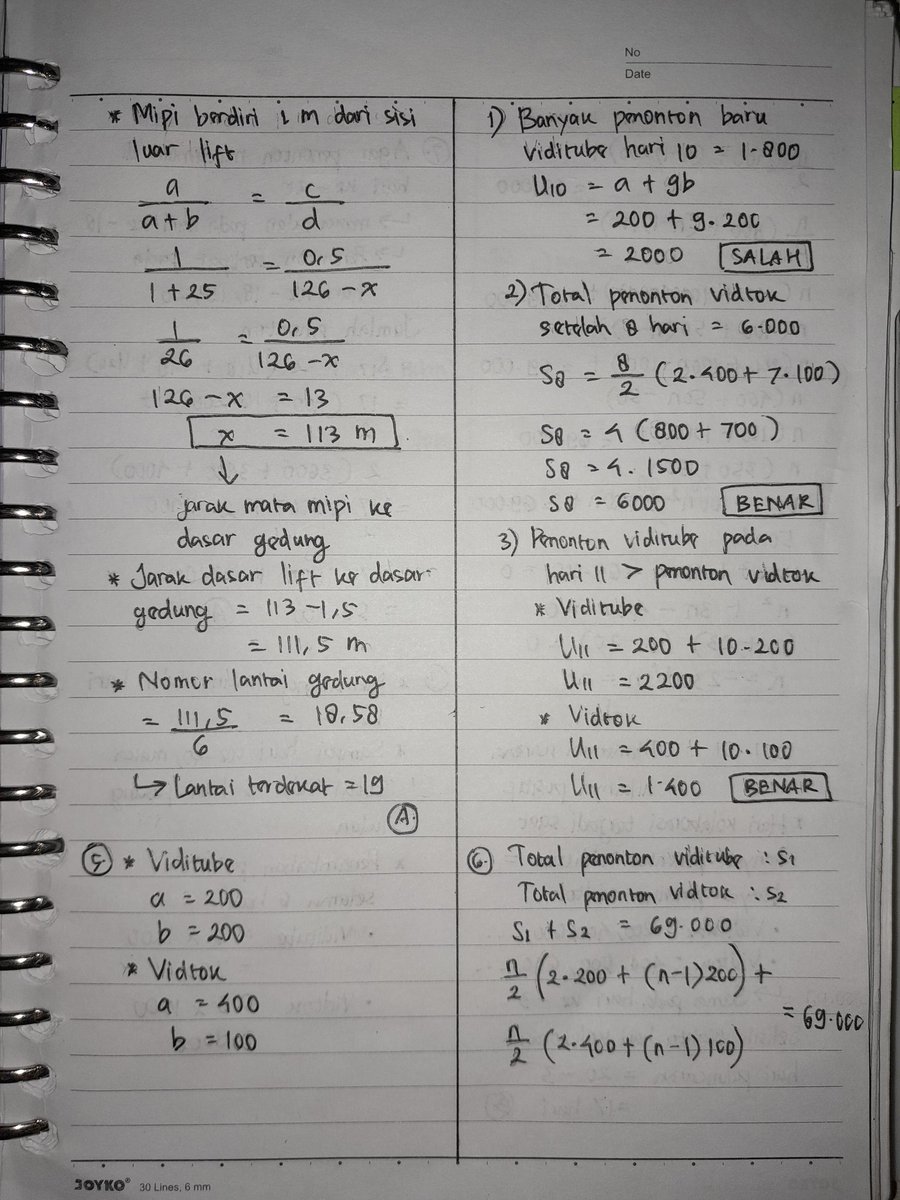 No
Date
* Mipi berdiri 1 m dari sisi
luar lift
a / (a+b) = c / d
1 / (1+25) = 0,5 / (126-x)
1 / 26 = 0,5 / (126-x)
126-x = 13
x = 113 m
↓
jarak mata mipi ke
dasar gedung
* Jarak dasar lift ke dasar
gedung = 113-1,5
= 111,5 m
* Nomor lantai gedung
= 111,5 / 6 = 18,58
↳ Lantai terdekat = 19
A.
5. * Viditube
a = 200
b = 200
* Vidtok
a = 400
b = 100
1) Banyak penonton baru
viditube hari 10 = 1.800
U10 = a + 9b
= 200 + 9.200
= 2000 SALAH
2) Total penonton vidtok
setelah 8 hari = 6.000
S8 = 8/2 (2.400 + 7.100)
S8 = 4 (800 + 700)
S8 = 4. 1500
S8 = 6000 BENAR
3) Penonton viditube pada
hari 11 > penonton vidtok
* Viditube
U11 = 200 + 10.200
U11 = 2200
* Vidtok
U11 = 400 + 10.100
U11 = 1.400 BENAR
6. Total penonton viditube : S1
Total penonton vidtok : S2
S1 + S2 = 69.000
n/2 (2.200 + (n-1)200) +
= 69.000
n/2 (2.400 + (n-1)100)
JOYKO® 30 Lines, 6 mm